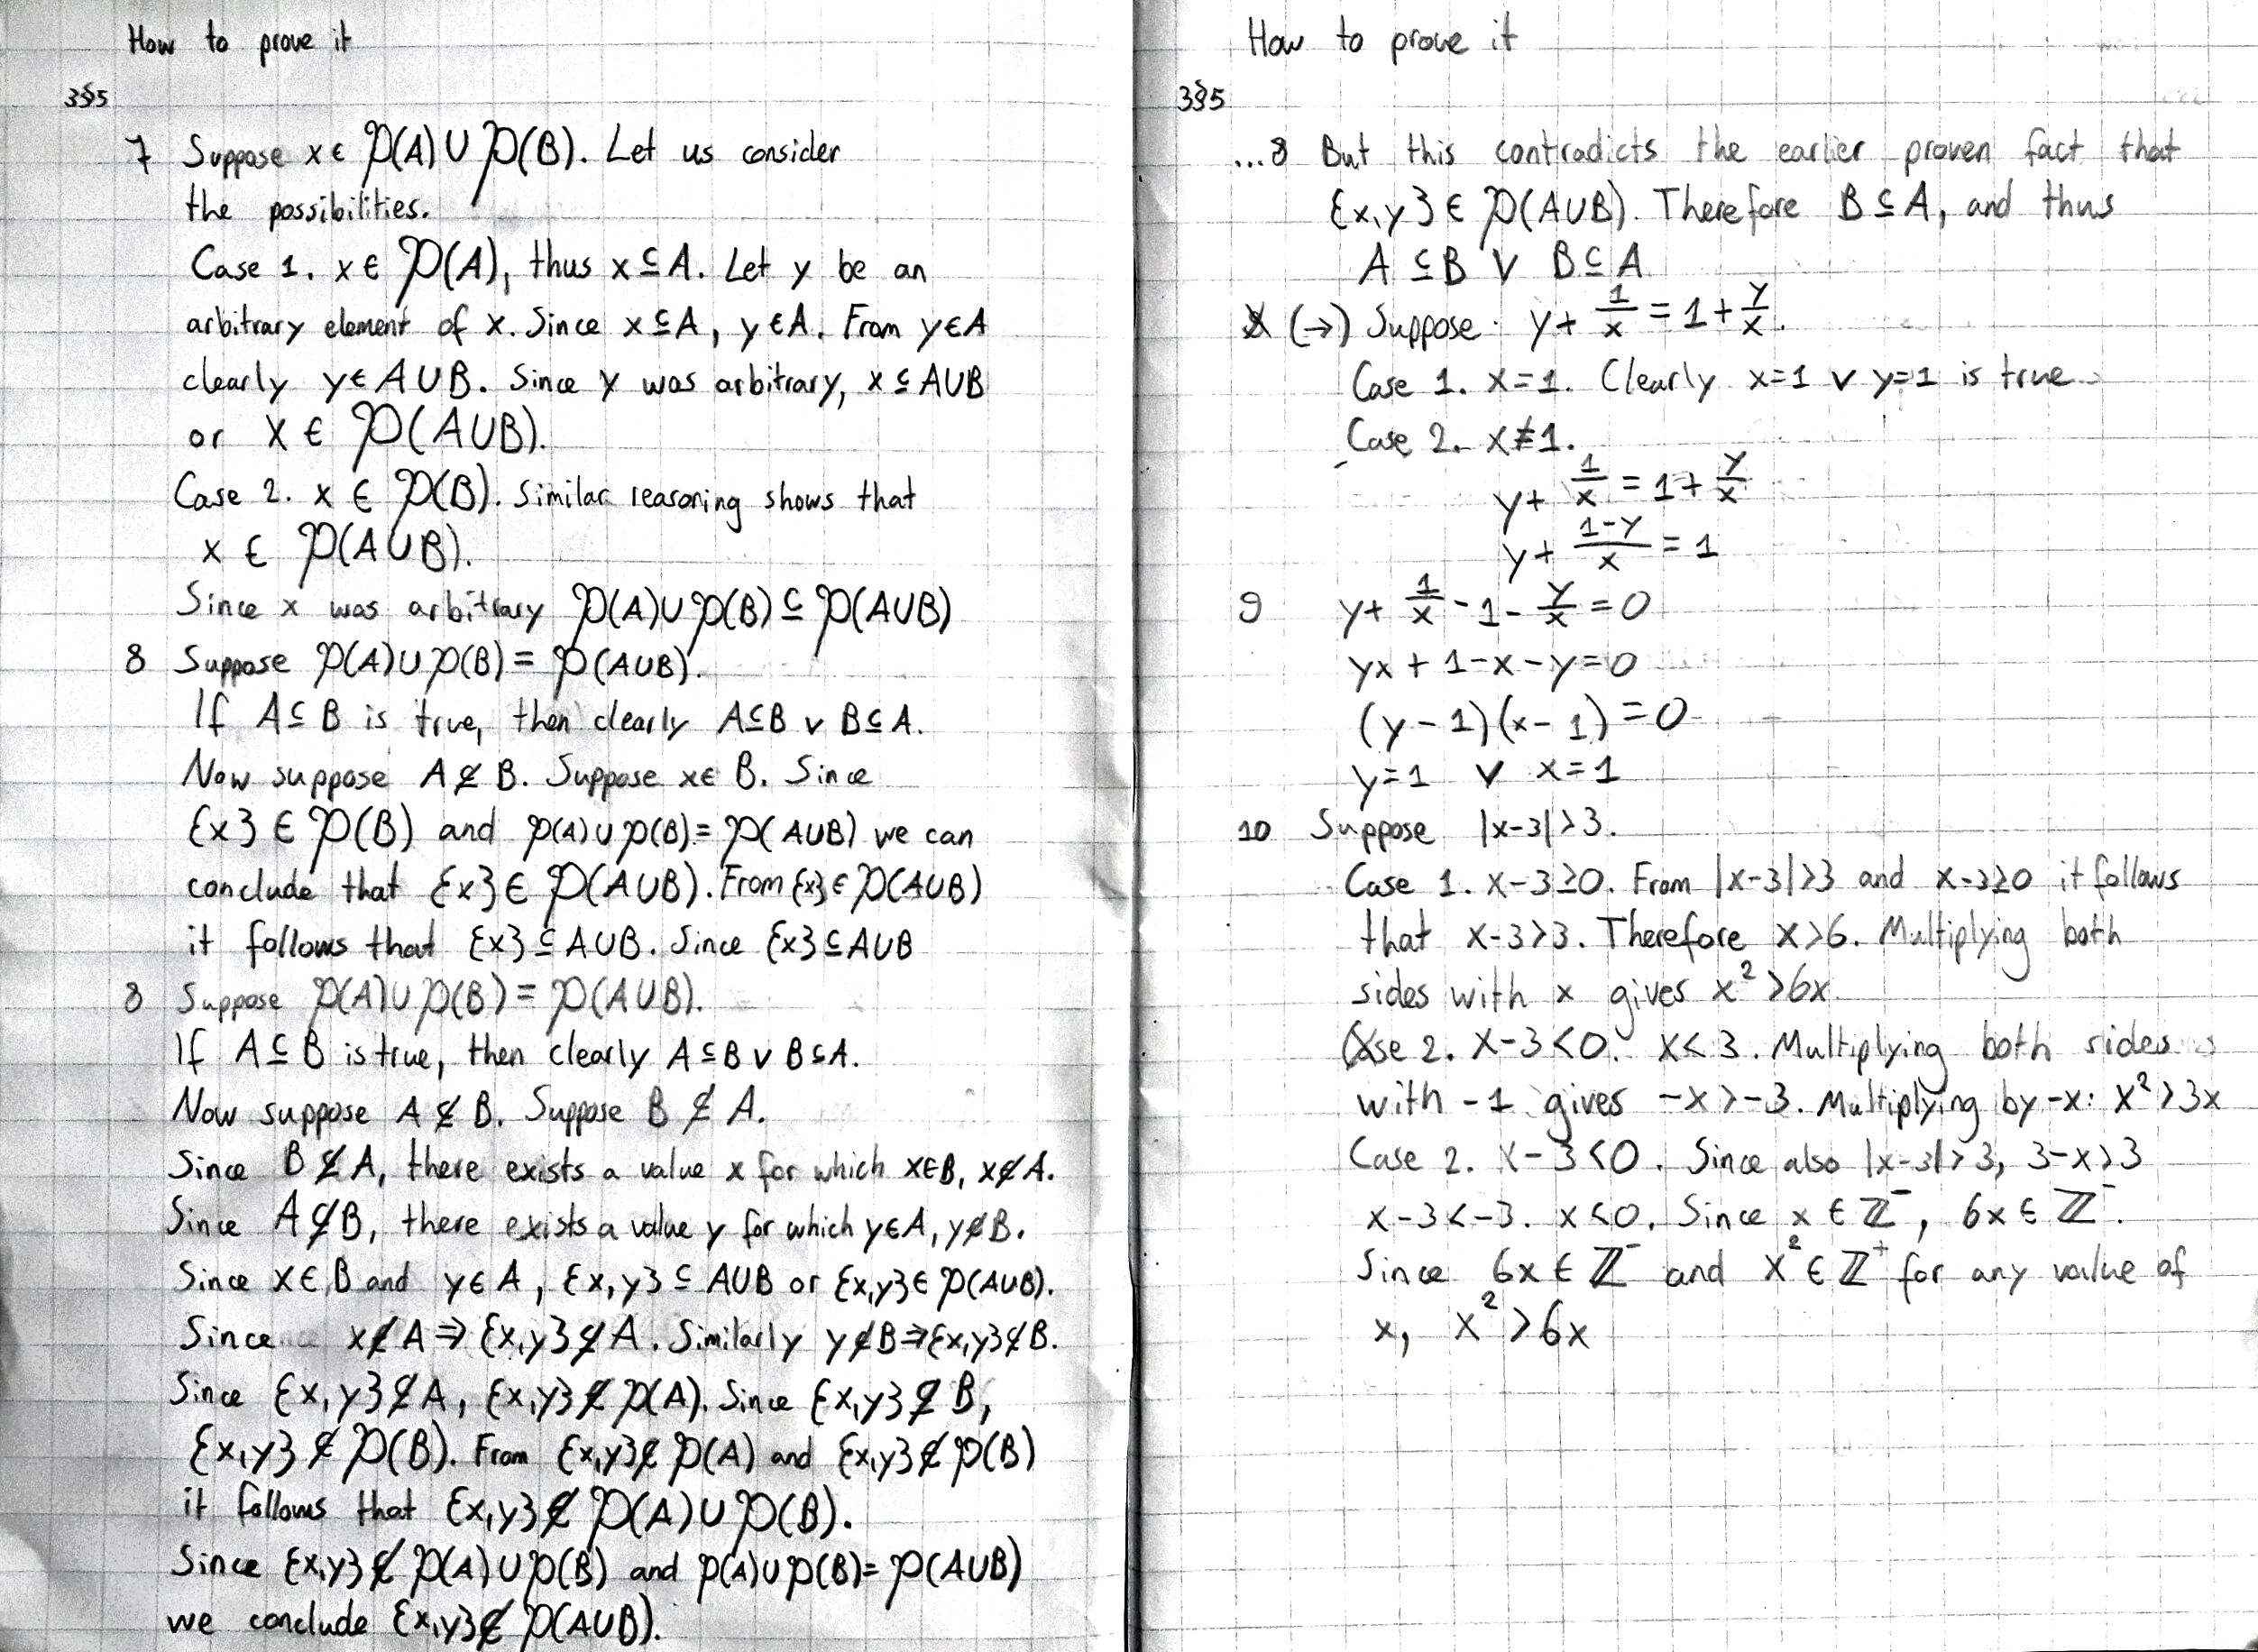 How to prove it
3§5
7 Suppose x ∈ 𝒫(A) ∪ 𝒫(B). Let us consider
the possibilities.
Case 1. x ∈ 𝒫(A), thus x ⊆ A. Let y be an
arbitrary element of x. Since x ⊆ A, y ∈ A. From y ∈ A
clearly y ∈ A ∪ B. Since y was arbitrary, x ⊆ A ∪ B
or x ∈ 𝒫(A ∪ B).
Case 2. x ∈ 𝒫(B). Similar reasoning shows that
x ∈ 𝒫(A ∪ B).
Since x was arbitrary 𝒫(A) ∪ 𝒫(B) ⊆ 𝒫(A ∪ B)
8 Suppose 𝒫(A) ∪ 𝒫(B) = 𝒫(A ∪ B).
If A ⊆ B is true, then clearly A ⊆ B ∨ B ⊆ A.
Now suppose A ⊈ B. Suppose x ∈ B. Since
{x} ∈ 𝒫(B) and 𝒫(A) ∪ 𝒫(B) = 𝒫(A ∪ B) we can
conclude that {x} ∈ 𝒫(A ∪ B). From {x} ∈ 𝒫(A ∪ B)
it follows that {x} ⊆ A ∪ B. Since {x} ⊆ A ∪ B
8 Suppose 𝒫(A) ∪ 𝒫(B) = 𝒫(A ∪ B).
If A ⊆ B is true, then clearly A ⊆ B ∨ B ⊆ A.
Now suppose A ⊈ B. Suppose B ⊈ A.
Since B ⊈ A, there exists a value x for which x ∈ B, x ∉ A.
Since A ⊈ B, there exists a value y for which y ∈ A, y ∉ B.
Since x ∈ B and y ∈ A, {x,y} ⊆ A ∪ B or {x,y} ∈ 𝒫(A ∪ B).
Since x ∉ A ⇒ {x,y} ⊈ A. Similarly y ∉ B ⇒ {x,y} ⊈ B.
Since {x,y} ⊈ A, {x,y} ∉ 𝒫(A). Since {x,y} ⊈ B,
{x,y} ∉ 𝒫(B). From {x,y} ∉ 𝒫(A) and {x,y} ∉ 𝒫(B)
it follows that {x,y} ∉ 𝒫(A) ∪ 𝒫(B).
Since {x,y} ∉ 𝒫(A) ∪ 𝒫(B) and 𝒫(A) ∪ 𝒫(B) = 𝒫(A ∪ B)
we conclude {x,y} ∉ 𝒫(A ∪ B).
How to prove it
3§5
...8 But this contradicts the earlier proven fact that
{x,y} ∈ 𝒫(A ∪ B). Therefore B ⊆ A, and thus
A ⊆ B ∨ B ⊆ A
(→) Suppose y + 1/x = 1 + y/x.
Case 1. x = 1. Clearly x=1 ∨ y=1 is true
Case 2. x ≠ 1.
y + 1/x = 1 + y/x
y + (1-y)/x = 1
9 y + 1/x - 1 - y/x = 0
yx + 1 - x - y = 0
(y - 1)(x - 1) = 0
y = 1 ∨ x = 1
10 Suppose |x-3| > 3.
Case 1. x-3 ≥ 0. From |x-3| > 3 and x-3 ≥ 0 it follows
that x-3 > 3. Therefore x > 6. Multiplying both
sides with x gives x² > 6x
Case 2. x-3 < 0. x < 3. Multiplying both sides
with -1 gives -x > -3. Multiplying by -x: x² > 3x
Case 2. x-3 < 0. Since also |x-3| > 3, 3-x > 3
x-3 < -3. x < 0. Since x ∈ ℤ⁻, 6x ∈ ℤ⁻.
Since 6x ∈ ℤ⁻ and x² ∈ ℤ⁺ for any value of
x, x² > 6x